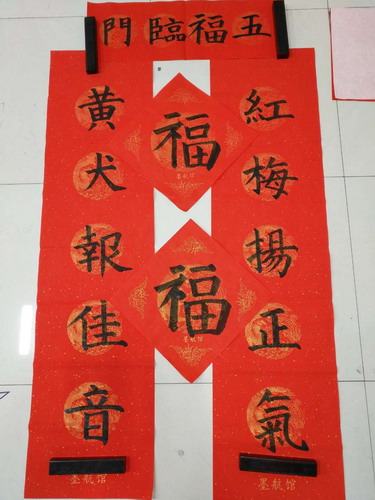 五福臨門
紅梅揚正氣
黄犬報佳音
福
墨航馆
福
墨航馆
墨航馆
墨航馆